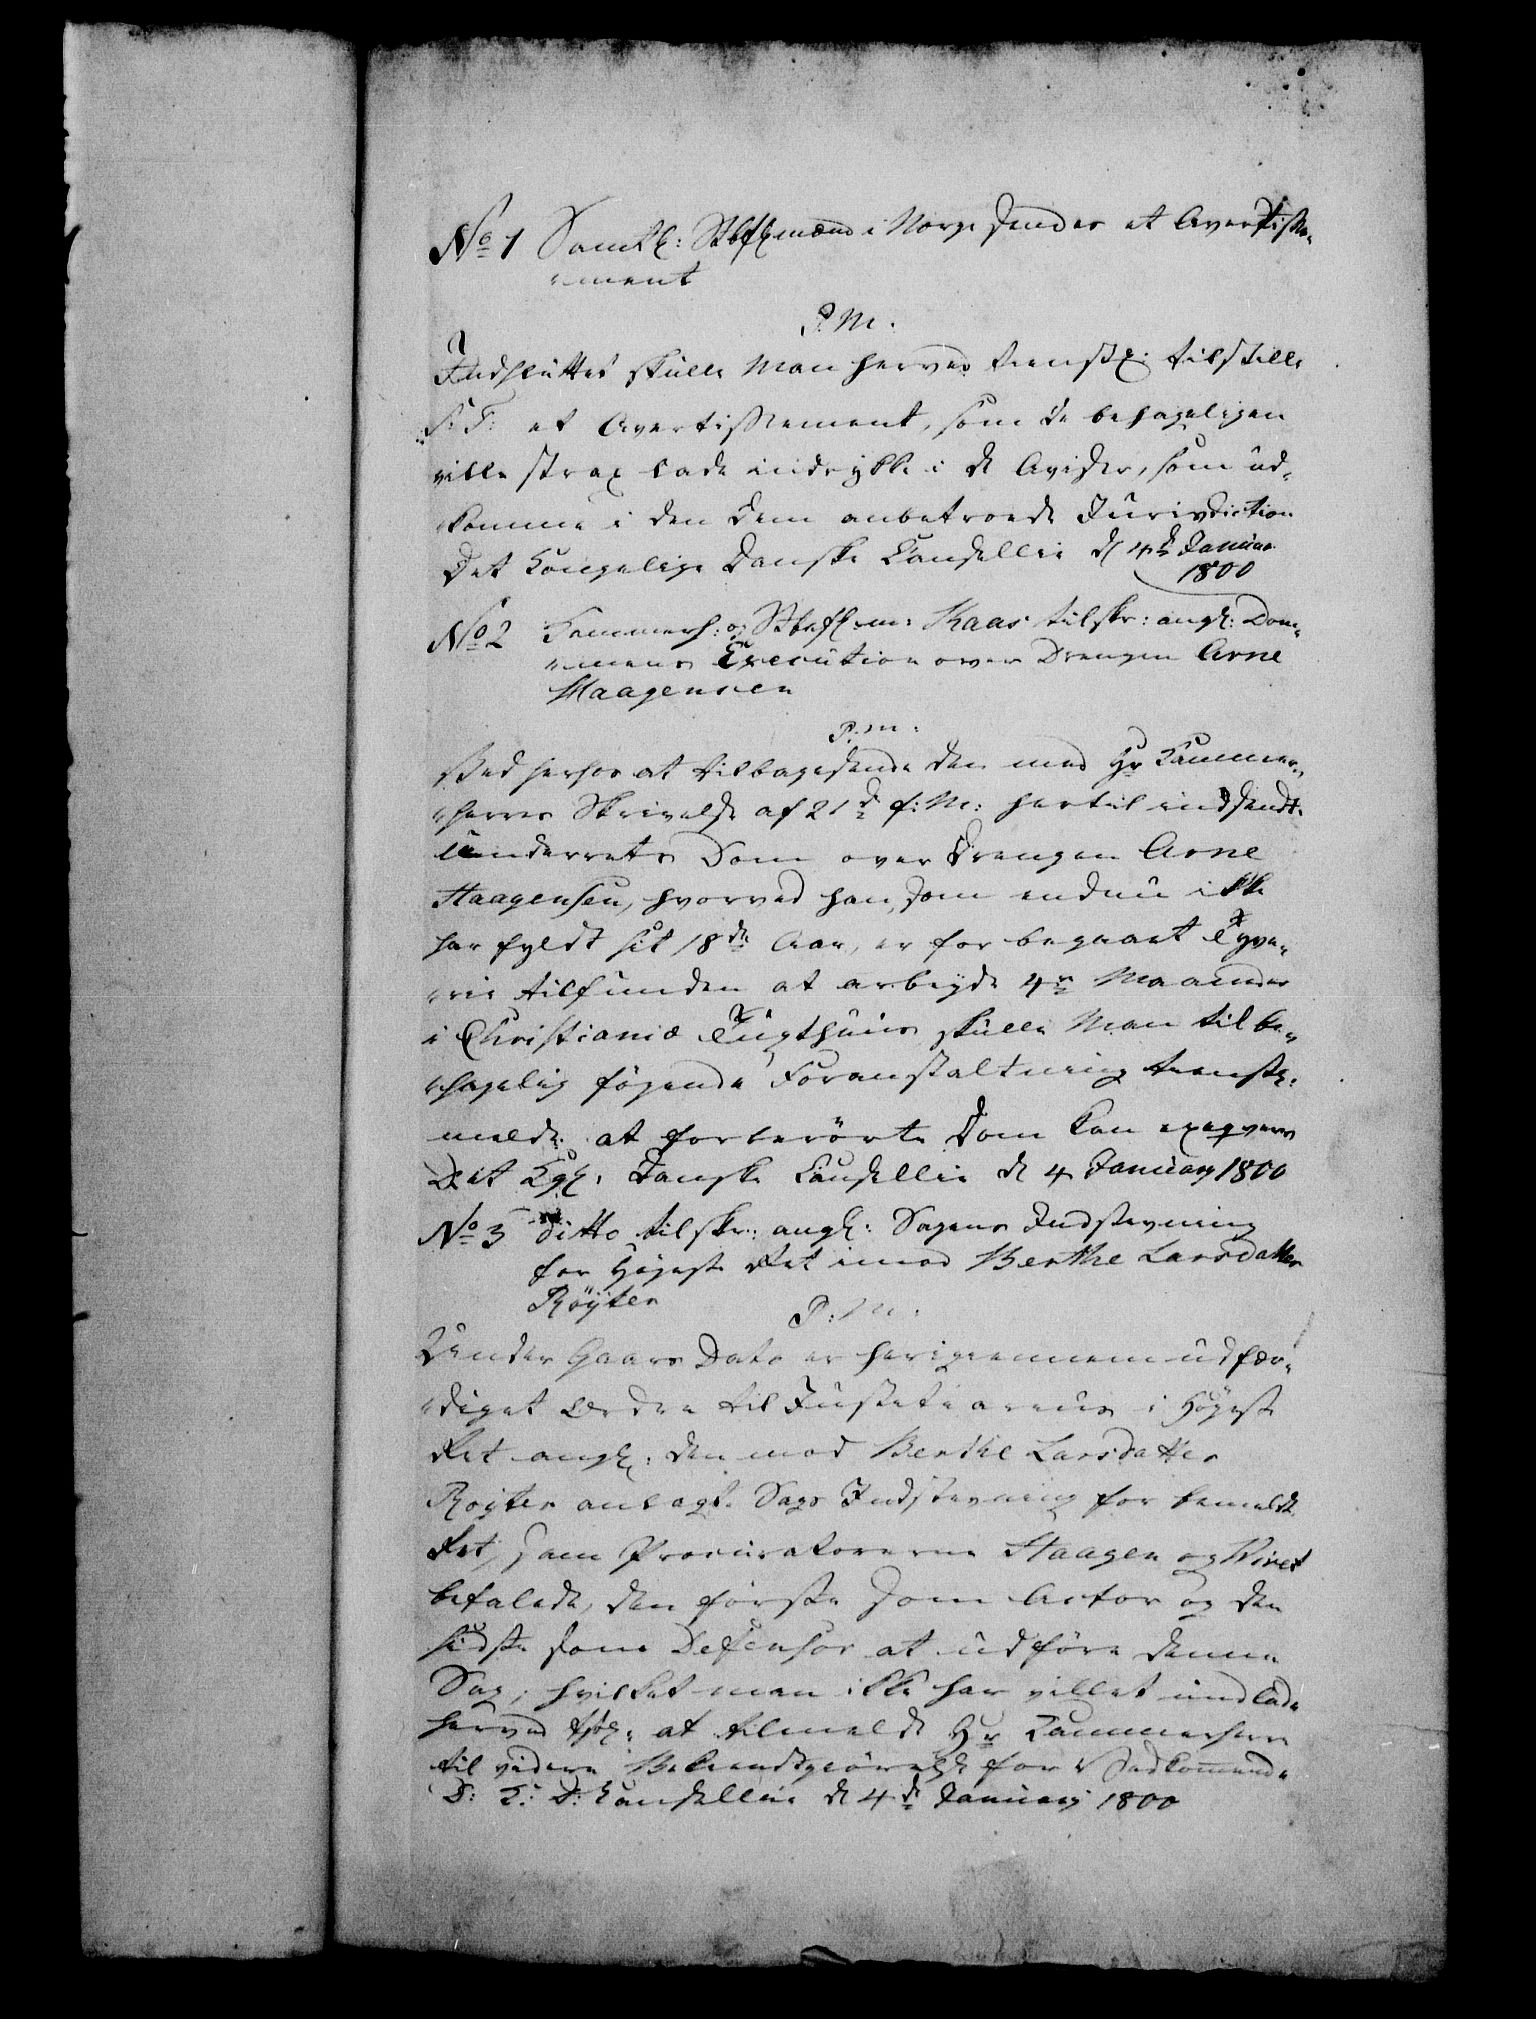 No 1 Samtl: Stbflmænd i Norge sendes et Avertisse-
-ment
P.M.
Indsluttet skulle Man herved tienstl: tilstille
S:T: et Avertissement, som De behageligen
ville strax lade indrykke i de Aviser, som ud-
-komme i den Dem anbetroede Jurisdiction
Det Kongelige Danske Cancellie d 4de Januar
1800
No 2 Kammerh: og Stbeflm: Kaas tilskr: angl: Dom-
-mens Execution over Drengen Arne
Haagensen
P:M:
Ved herhos at tilbagesende den med Hr Kammer-
-herres Skrivelse af 21de f:M: hertil indsendte
Underrets Dom over Drengen Arne
Haagensen, hvorved han, som endnu ikke
har fyldt sit 18de Aar, er for begaaet Tyve-
-rie tilfunden at arbeyde 4re Maaneder
i Christianiæ Tugthuus skulle Man til be-
-hagelig føyende Foranstaltning tienstl:
melde at forberörte Dom kan exeqveres
Det Kgl: Danske Cancellie d 4 Januarij 1800
No 3 ditto tilskr: angl: Sagens Indstevning
for Höyeste Ret imod Berthe Larsdatter
Röyter
P:M:
Under Gaars Dato er herigiennem udfær-
-diget Ordre til Justitiarius i Höyeste
Ret angl: den mod Berthe Larsdatter
Royter anlagte Sags Indstevning for bemeldte
Ret, som Procuratorerne Haagen og
befalede, den förste som Actor og den
sidste som Defensor at udföre denne
Sag; hvilket man ikke har villet undlade
herved tjstl: at tilmelde Hr Kammerherre
til videre Bekiendtgiörelse for Vedkommende
D: K: D: Cancellie d 4de Januarij 1800